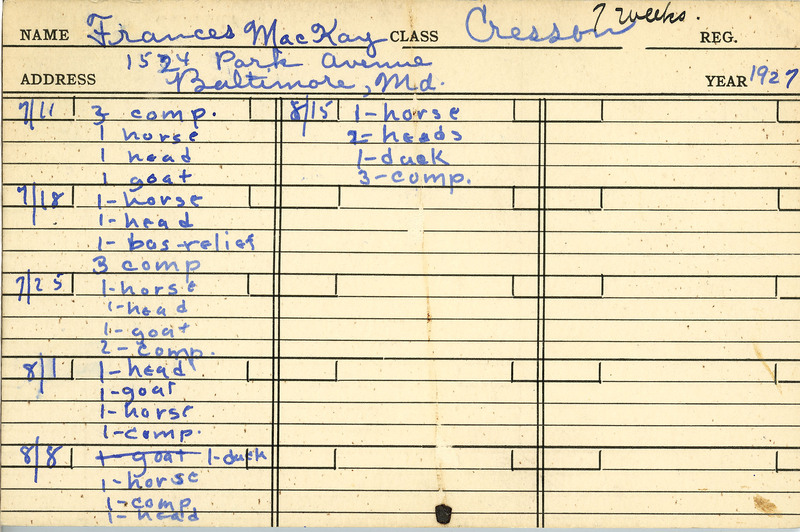 7 weeks.
NAME Frances MacKay CLASS Cresson REG.
1524 Park Avenue
ADDRESS Baltimore, Md. YEAR 1927
7/11 3 comp.
1 horse
1 head
1 goat
7/18 1-horse
1-head
1- bas-relief
3 comp
7/25 1-horse
1-head
1-goat
2-comp.
8/1 1-head
1-goat
1-horse
1-comp.
8/8 1-goat 1-duck
1-horse
1-comp
1-head
8/15 1-horse
2-heads
1-duck
3-comp.